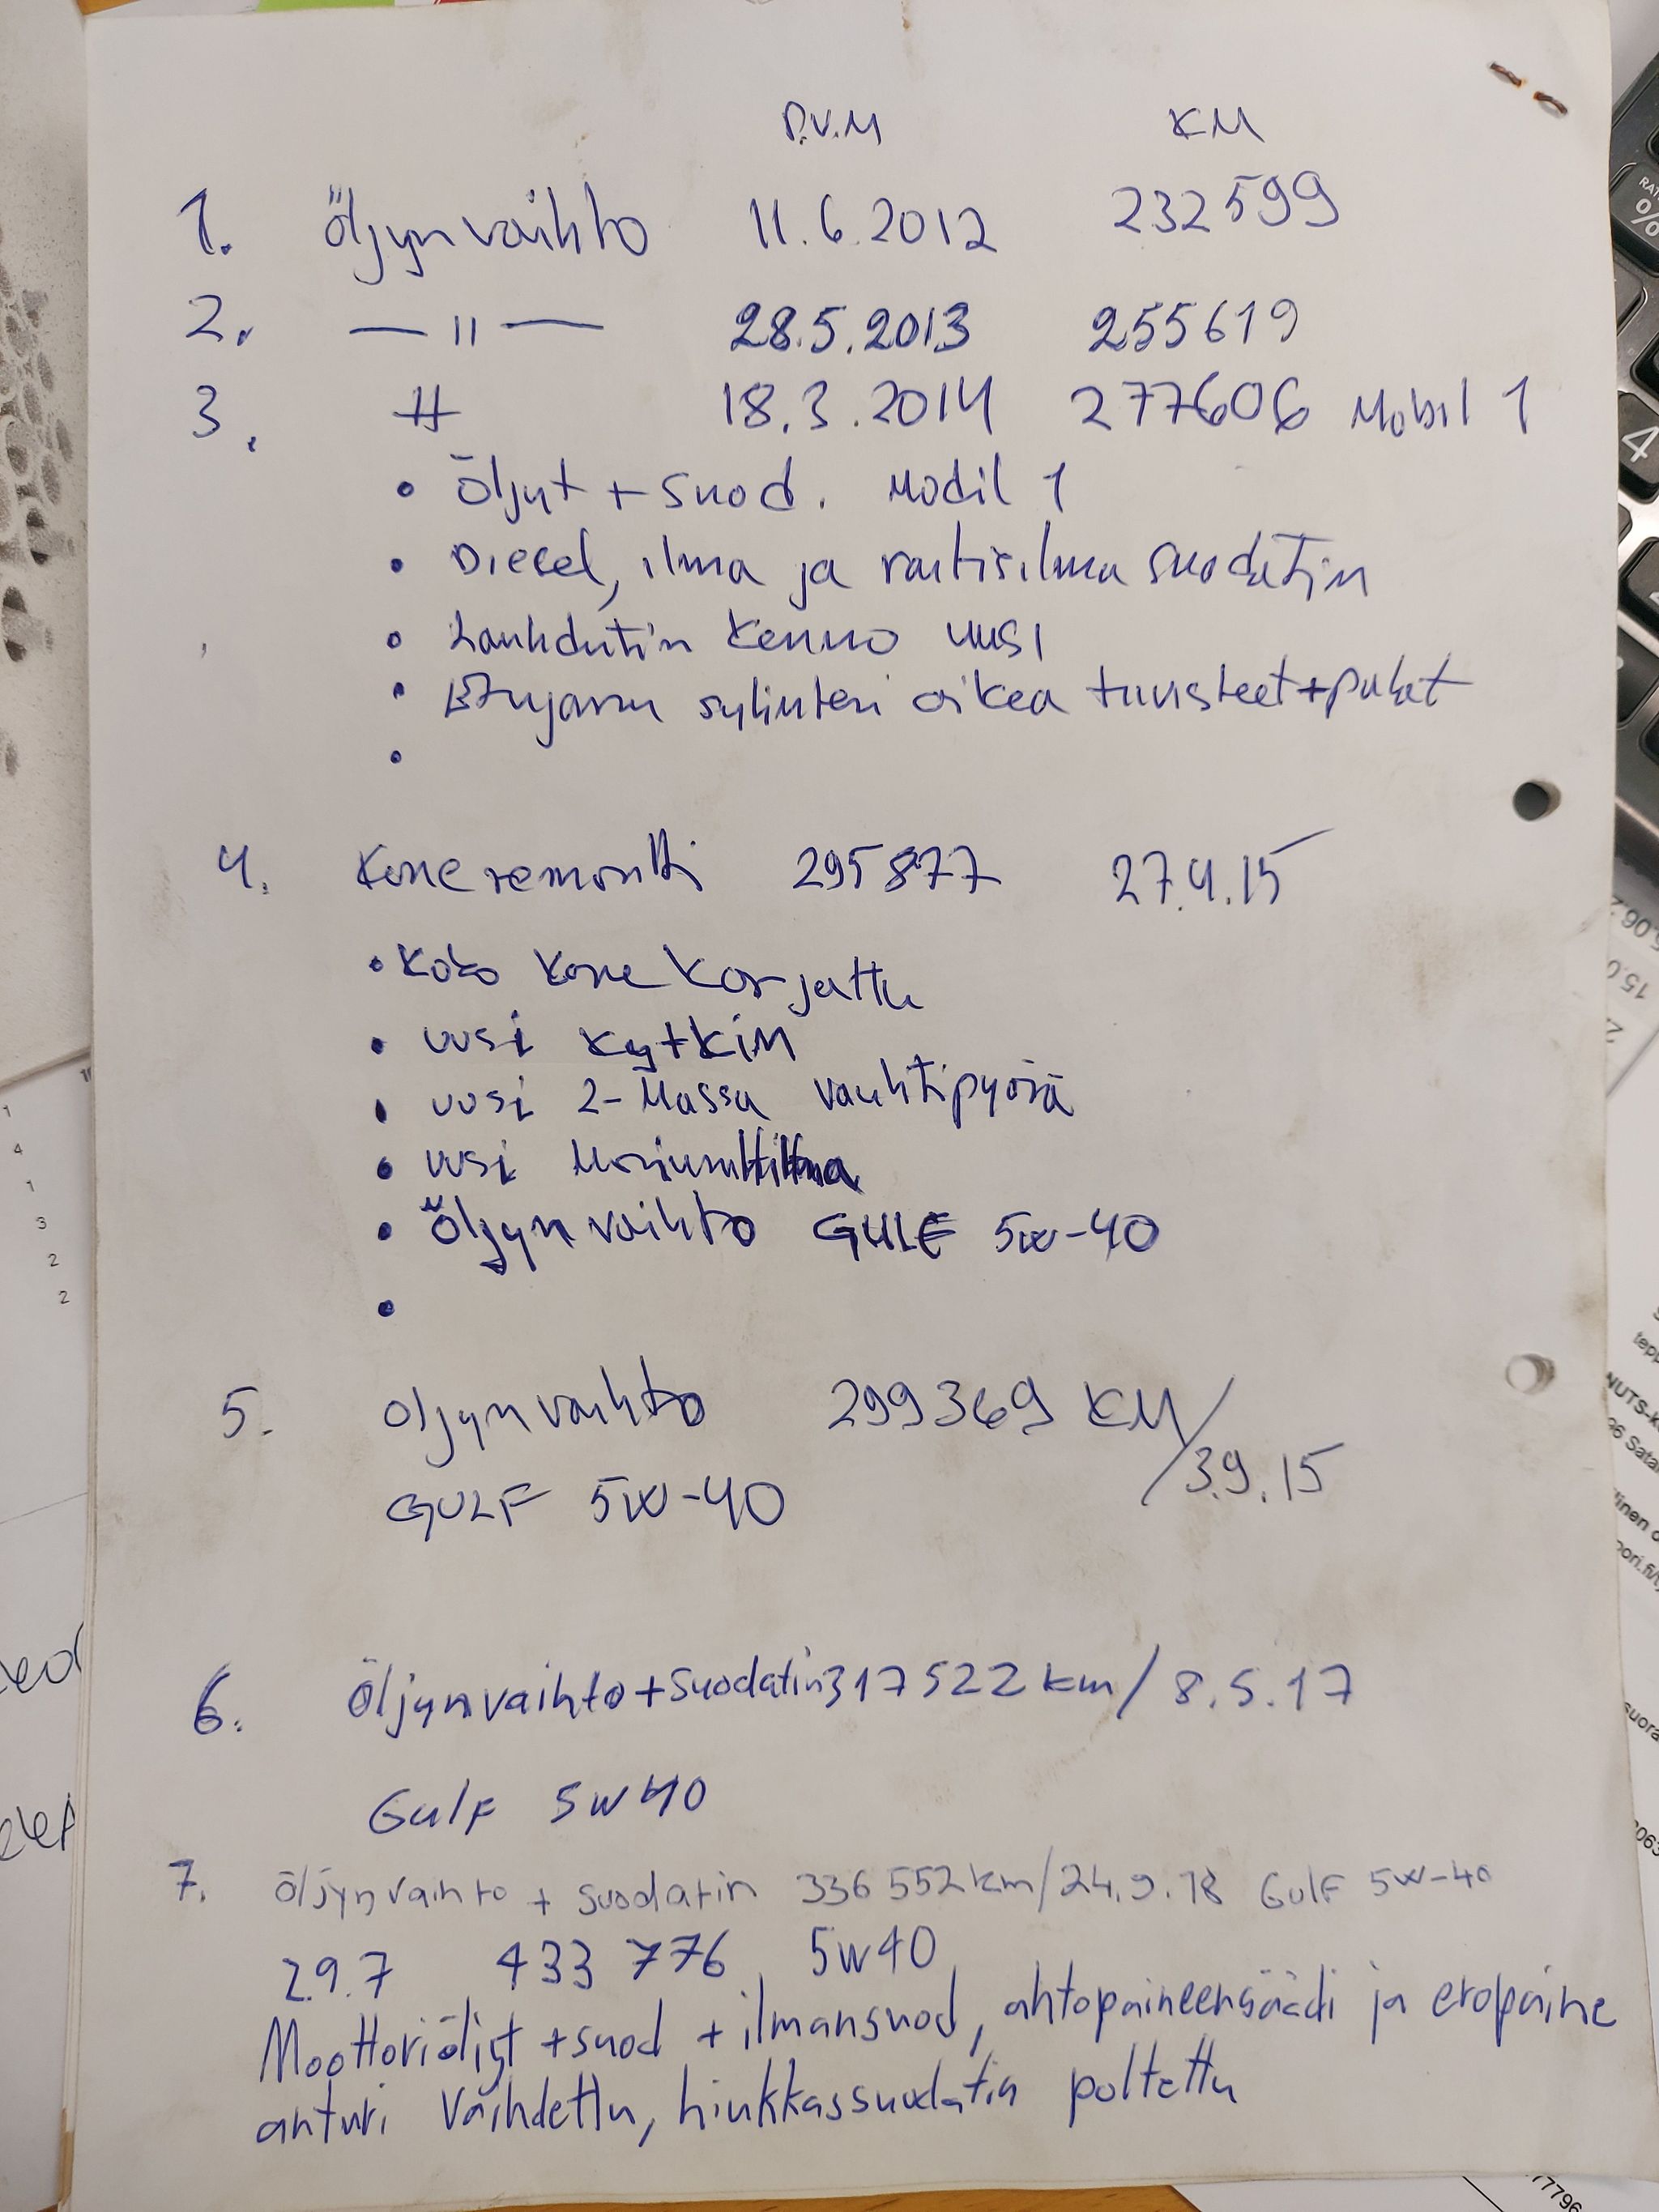 P.V.M KM
1. Öljynvaihto 11.6.2012 232599
2. —ıı— 28.5.2013 255619
3. 18.3.2014 277606 Mobil 1
• Öljyt + suod. Mobil 1
• Diesel, ilma ja raitisilma suodatin
• Lauhdutin kenno uusi
• Etujarru sylinteri oikea tiivisteet + palat
•
4. Koneremontti 295877 27.4.15
• Koko kone korjattu
• uusi kytkin
• uusi 2-Massa vauhtipyörä
• uusi
• Öljynvaihto GULF 5w-40
•
5. Öljynvaihto 299369 KM/
3.9.15
GULF 5W-40
6. Öljynvaihto + Suodatin 317522 km/ 8.5.17
Gulf 5W40
7. Öljynvaihto + suodatin 336 552km/24.9.18 Gulf 5W-40
29.7 433 776 5w40
Moottoriöljyt + suod + ilmansuod, ahtopaineensäädi ja eropaine
anturi Vaihdettu, hiukkassuodatin poltettu
RAT
%
4
1
4
1
3
2
2
15.0
NUTS-k
96 Sata
063
77796